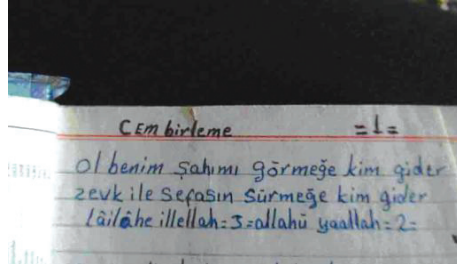 CEM birleme =1=
ol benim Şahımı görmeğe kim gider
zevk ile Sefasın Sürmeğe kim gider
Lâilâhe illellah=3=allahü yaallah=2=